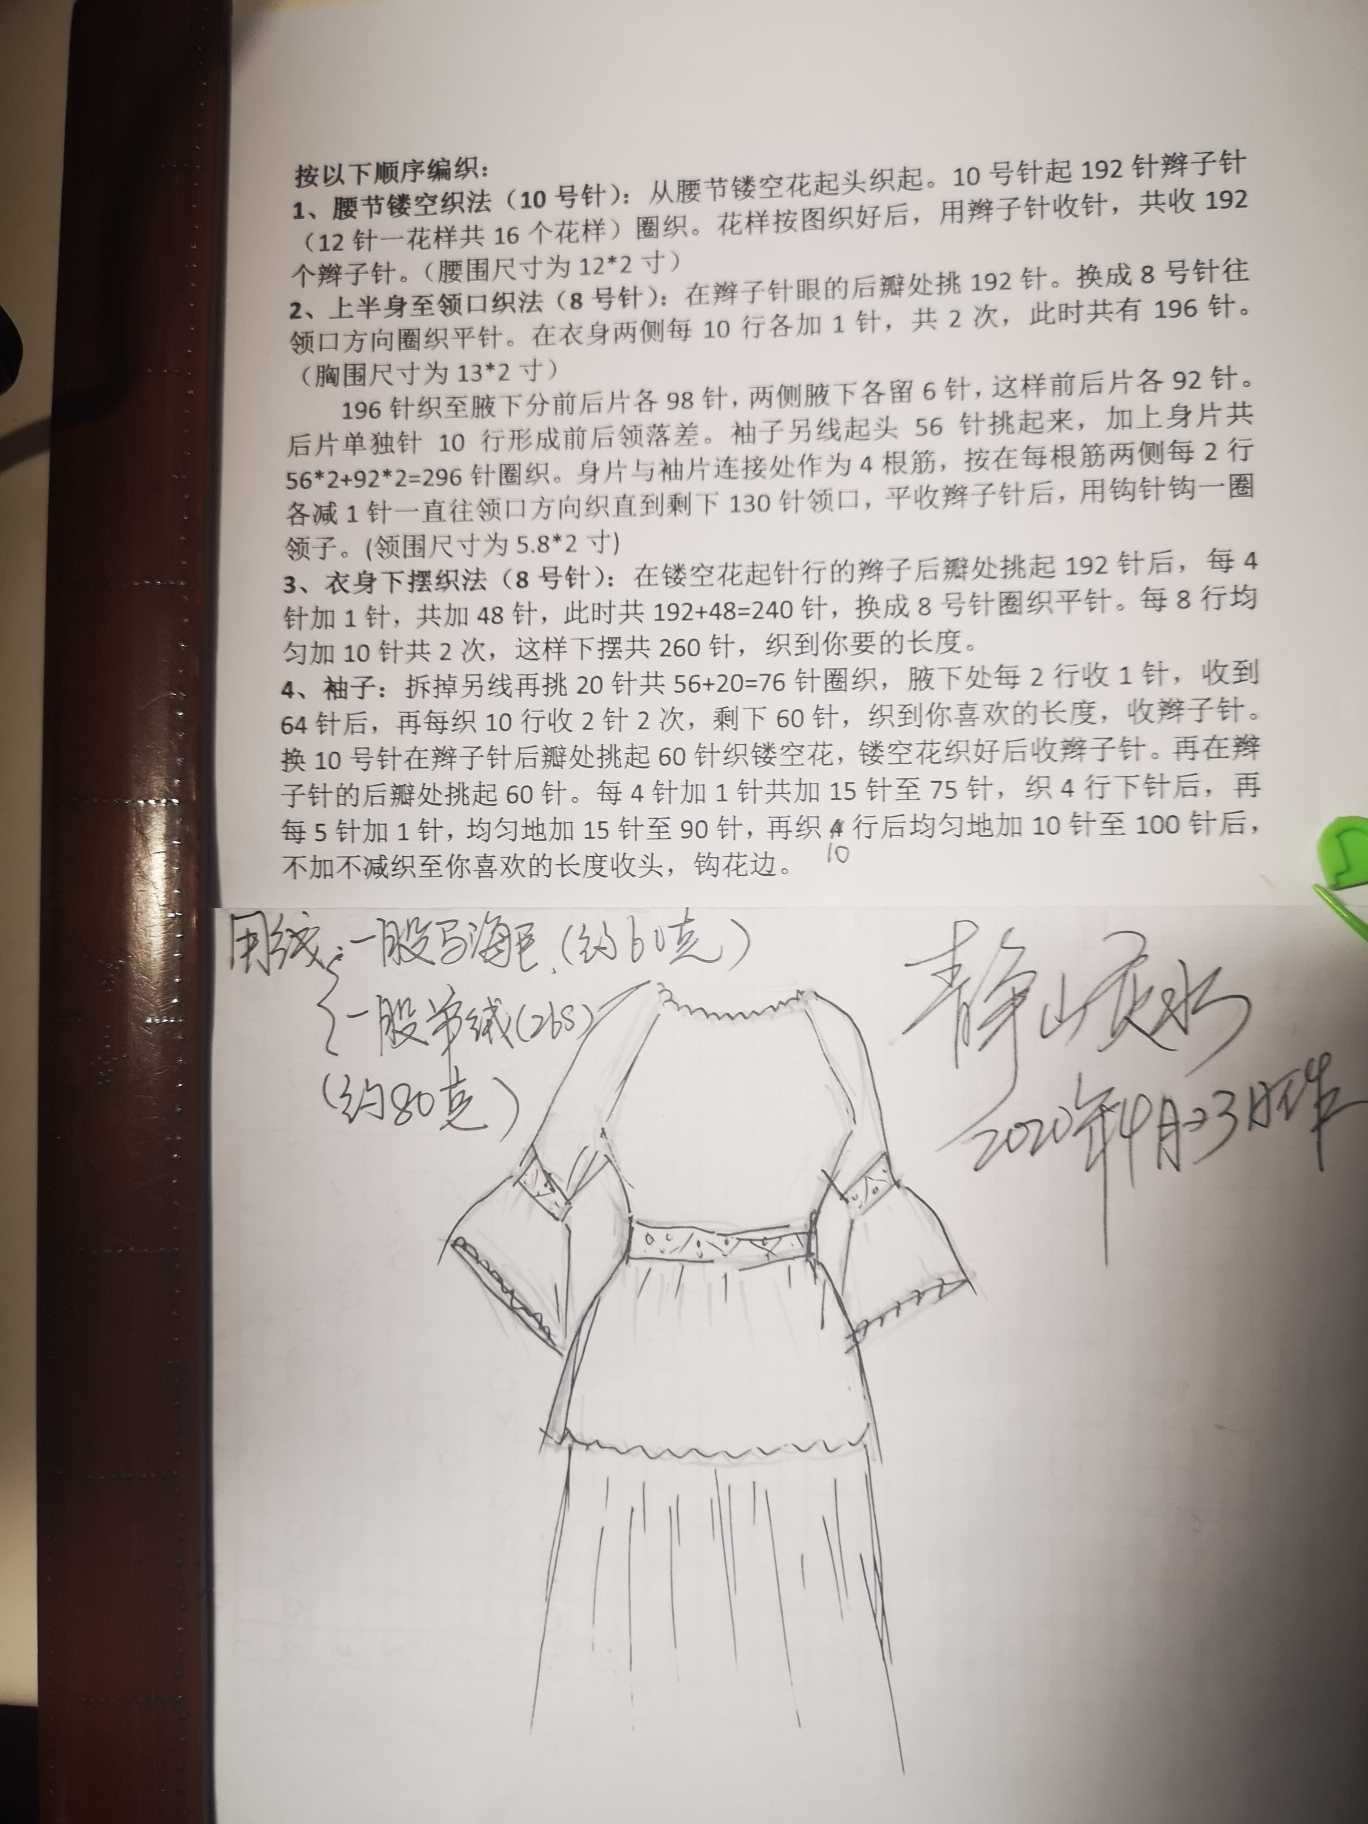 按以下顺序编织：
1、腰节镂空织法（10 号针）：从腰节镂空花起头织起。10 号针起 192 针辫子针
（12 针一花样共 16 个花样）圈织。花样按图织好后，用辫子针收针，共收 192
个辫子针。（腰围尺寸为 12*2 寸）
2、上半身至领口织法（8 号针）：在辫子针眼的后瓣处挑 192 针。换成 8 号针往
领口方向圈织平针。在衣身两侧每 10 行各加 1 针，共 2 次，此时共有 196 针。
（胸围尺寸为 13*2 寸）
196 针织至腋下分前后片各 98 针，两侧腋下各留 6 针，这样前后片各 92 针。
后片单独针 10 行形成前后领落差。袖子另线起头 56 针挑起来，加上身片共
56*2+92*2=296 针圈织。身片与袖片连接处作为 4 根筋，按在每根筋两侧每 2 行
各减 1 针一直往领口方向织直到剩下 130 针领口，平收辫子针后，用钩针钩一圈
领子。(领围尺寸为 5.8*2 寸)
3、衣身下摆织法（8 号针）：在镂空花起针行的辫子后瓣处挑起 192 针后，每 4
针加 1 针，共加 48 针，此时共 192+48=240 针，换成 8 号针圈织平针。每 8 行均
匀加 10 针共 2 次，这样下摆共 260 针，织到你要的长度。
4、袖子：拆掉另线再挑 20 针共 56+20=76 针圈织，腋下处每 2 行收 1 针，收到
64 针后，再每织 10 行收 2 针 2 次，剩下 60 针，织到你喜欢的长度，收辫子针。
换 10 号针在辫子针后瓣处挑起 60 针织镂空花，镂空花织好后收辫子针。再在辫
子针的后瓣处挑起 60 针。每 4 针加 1 针共加 15 针至 75 针，织 4 行下针后，再
每 5 针加 1 针，均匀地加 15 针至 90 针，再织 4 行后均匀地加 10 针至 100 针后，
10
不加不减织至你喜欢的长度收头，钩花边。
用线：一股马海毛（约60克）
一股羊绒(26S)
（约80克）
静山灰水
2020年4月23日